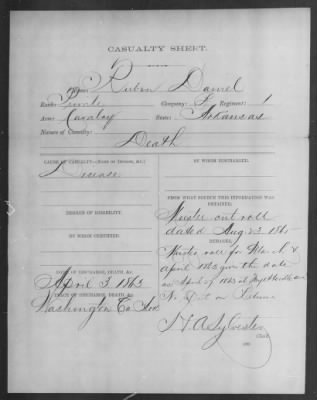 CASUALTY SHEET.
Name: Ruben Daniel
Rank: Private Company: L Regiment: 1
Arm: Cavalry State: Arkansas
Nature of Casualty: Death
CAUSE OF CASUALTY—(NAME OF DISEASE, &C.)
Disease
BY WHOM DISCHARGED.
DEGREE OF DISABILITY.
FROM WHAT SOURCE THIS INFORMATION WAS
OBTAINED.
Muster out roll
dated Aug 23 1865
BY WHOM CERTIFIED.
REMARKS.
Muster roll for Mar &
April 1863 give the date
as April 9 1863 at Fayetteville Ark
DATE OF DISCHARGE, DEATH, &C.
April 3, 1863
PLACE OF DISCHARGE, DEATH, &C.
Washington Co Ark
No on
H A Sylvester
Clerk.